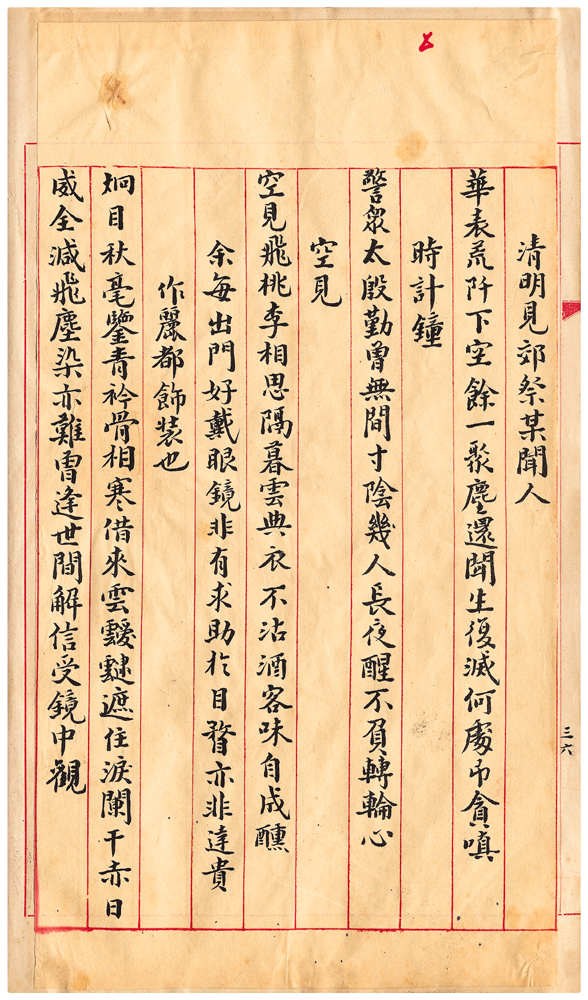 清明見郊祭某聞人
華表荒阡下空餘一聚塵還聞生復滅何處弔貪嗔
時計鐘
警眾太殷勤曾無間寸陰幾人長夜醒不負轉輪心
空見
空見飛桃李相思隔暮雲典衣不沽酒客味自成醺
余每出門好戴眼鏡非有求助於目瞀亦非達貴
作麗都飾裝也
炯目秋毫鑒青衿骨相寒借來雲靉靆遮住淚闌干赤日
威全減飛塵染亦難曹逢世間解信受鏡中觀
三六